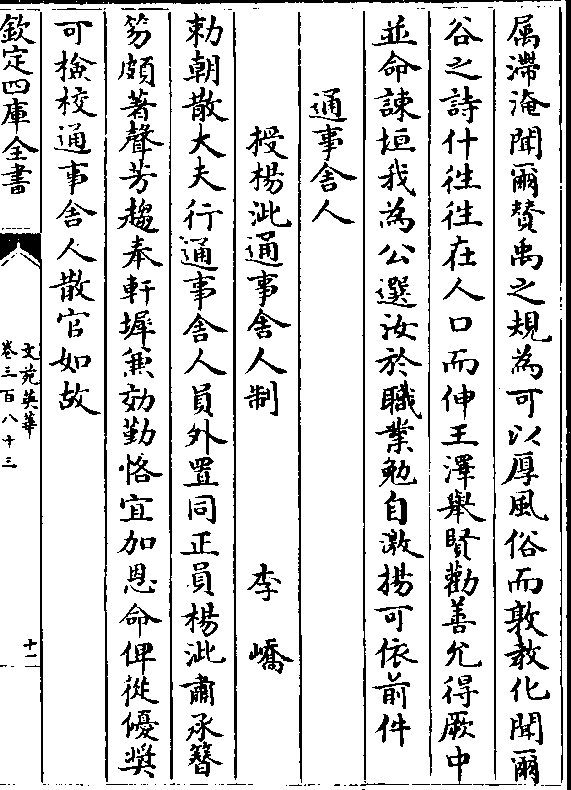 属滯淹聞爾賛禹之規為可以厚風俗而敦教化聞爾
谷之詩什徃徃在人口而伸王澤舉賢勸善允得厥中
並命諫垣我為公選汝於職業勉自激揚可依前件
通事舍人
授楊泚通事舍人制 李嶠
勅朝散大夫行通事舍人員外置同正員楊泚肅承簪
笏頗著聲芳趨奉軒墀兼効勤恪宜加恩命俾從優奨
可檢校通事舍人散官如故
欽定四庫全書
文苑英華
卷三百八十三
十二